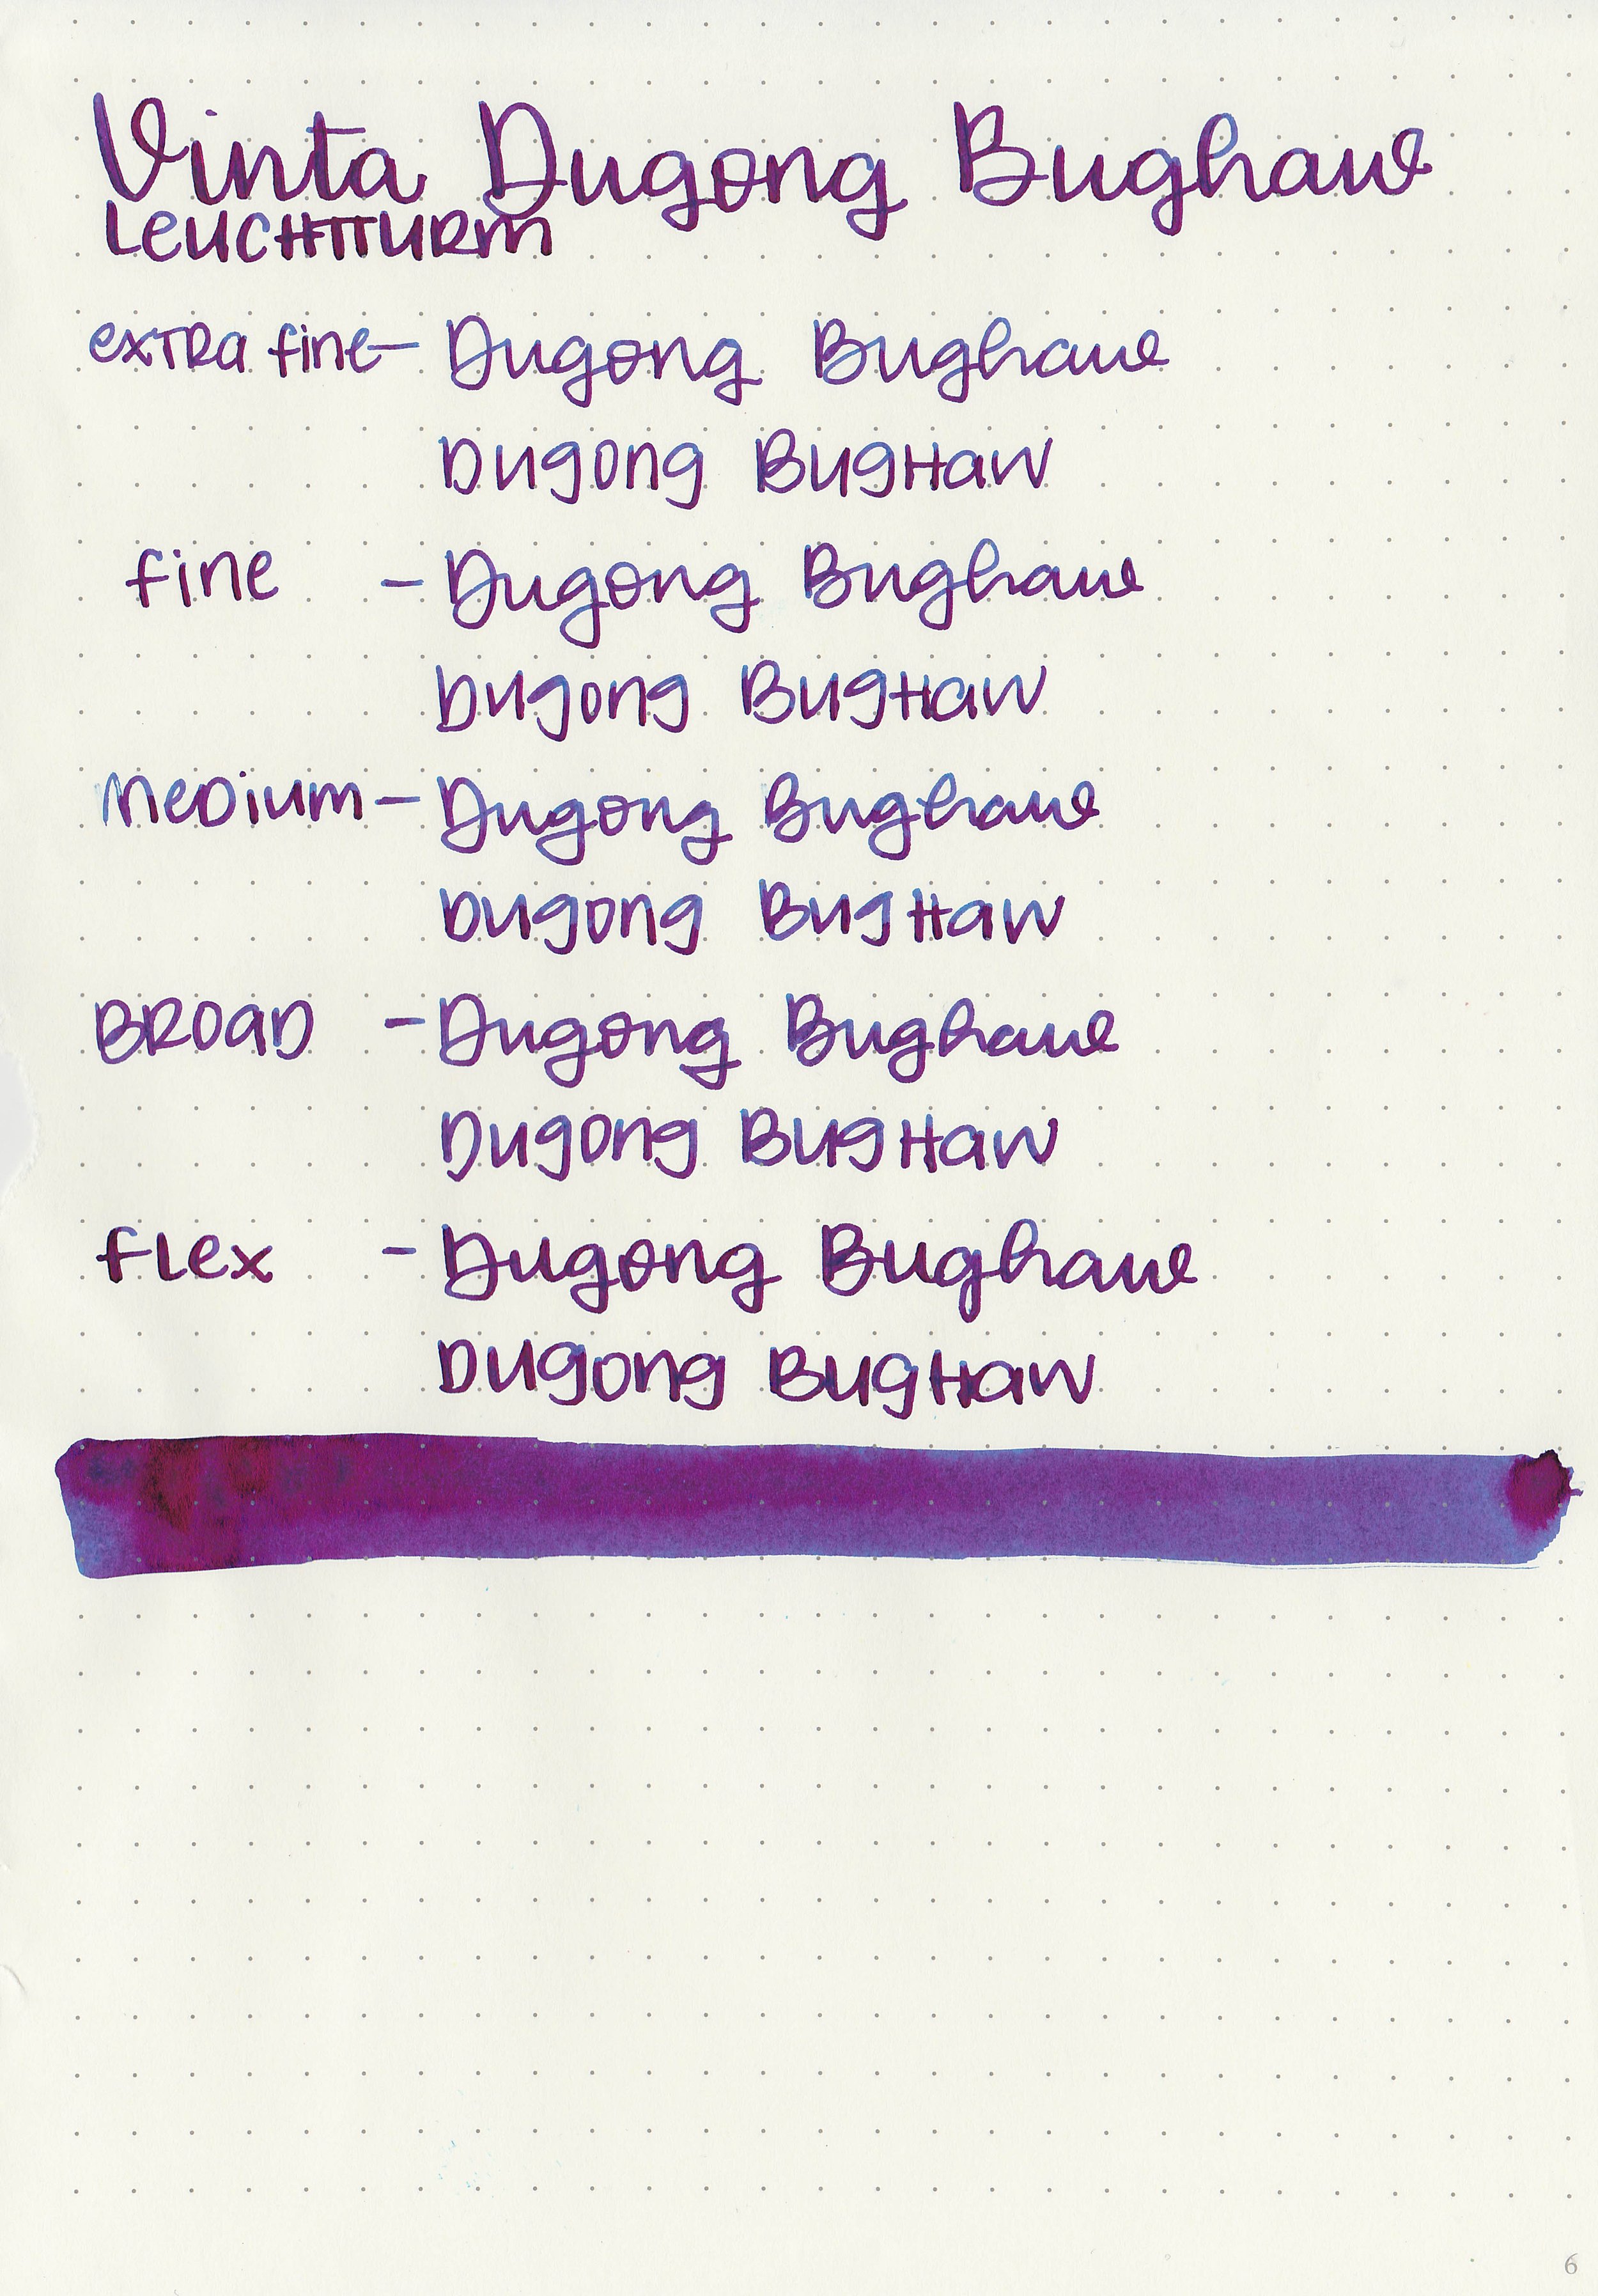 Vinta Dugong Bughaw
LEUCHTTURM
extra fine - Dugong Bughaw
Dugong BugHaw
fine - Dugong Bughaw
Dugong BugHaw
Medium - Dugong Bughaw
Dugong BugHaw
BROAD - Dugong Bughaw
Dugong BugHaw
fLex - Dugong Bughaw
Dugong BugHaw
6